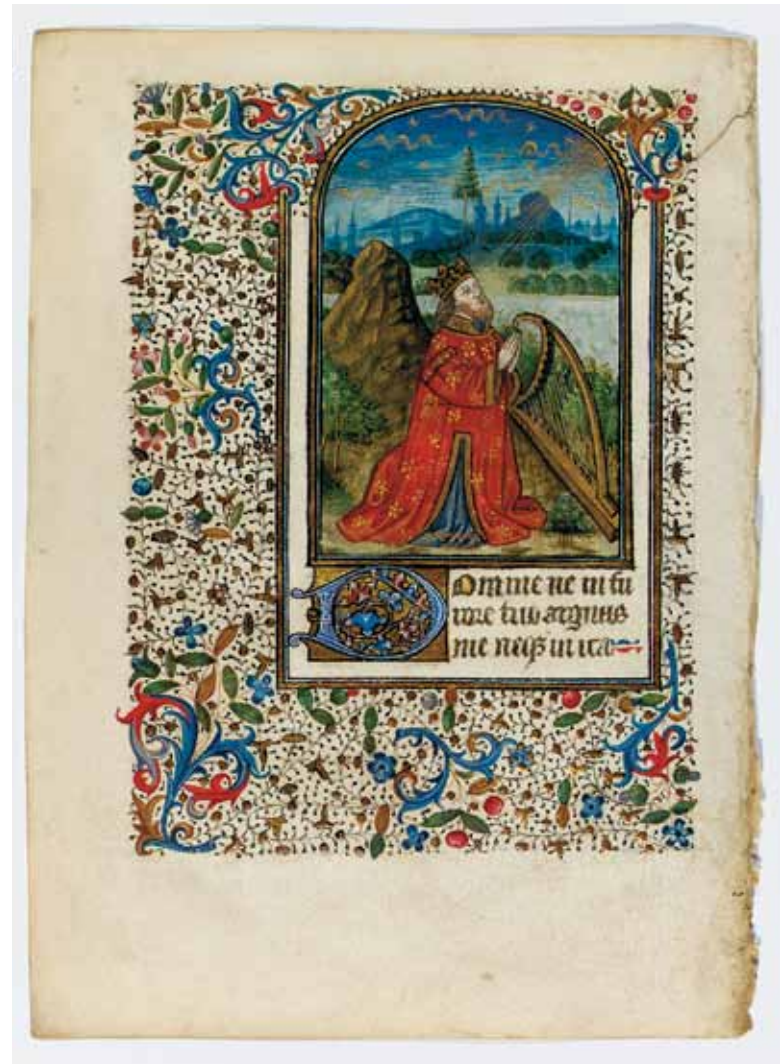 Domine ne in fu
rore tuo arguas
me neqꝫ in ira